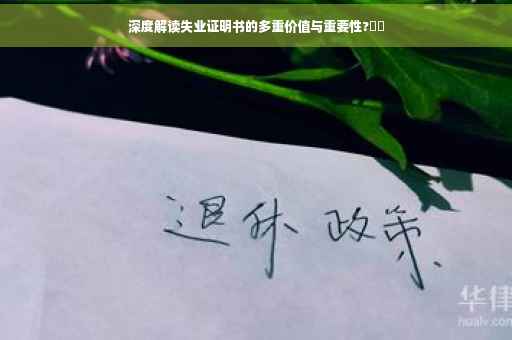 深度解读失业证明书的多重价值与重要性?
退休 政策
华律
hualv.com